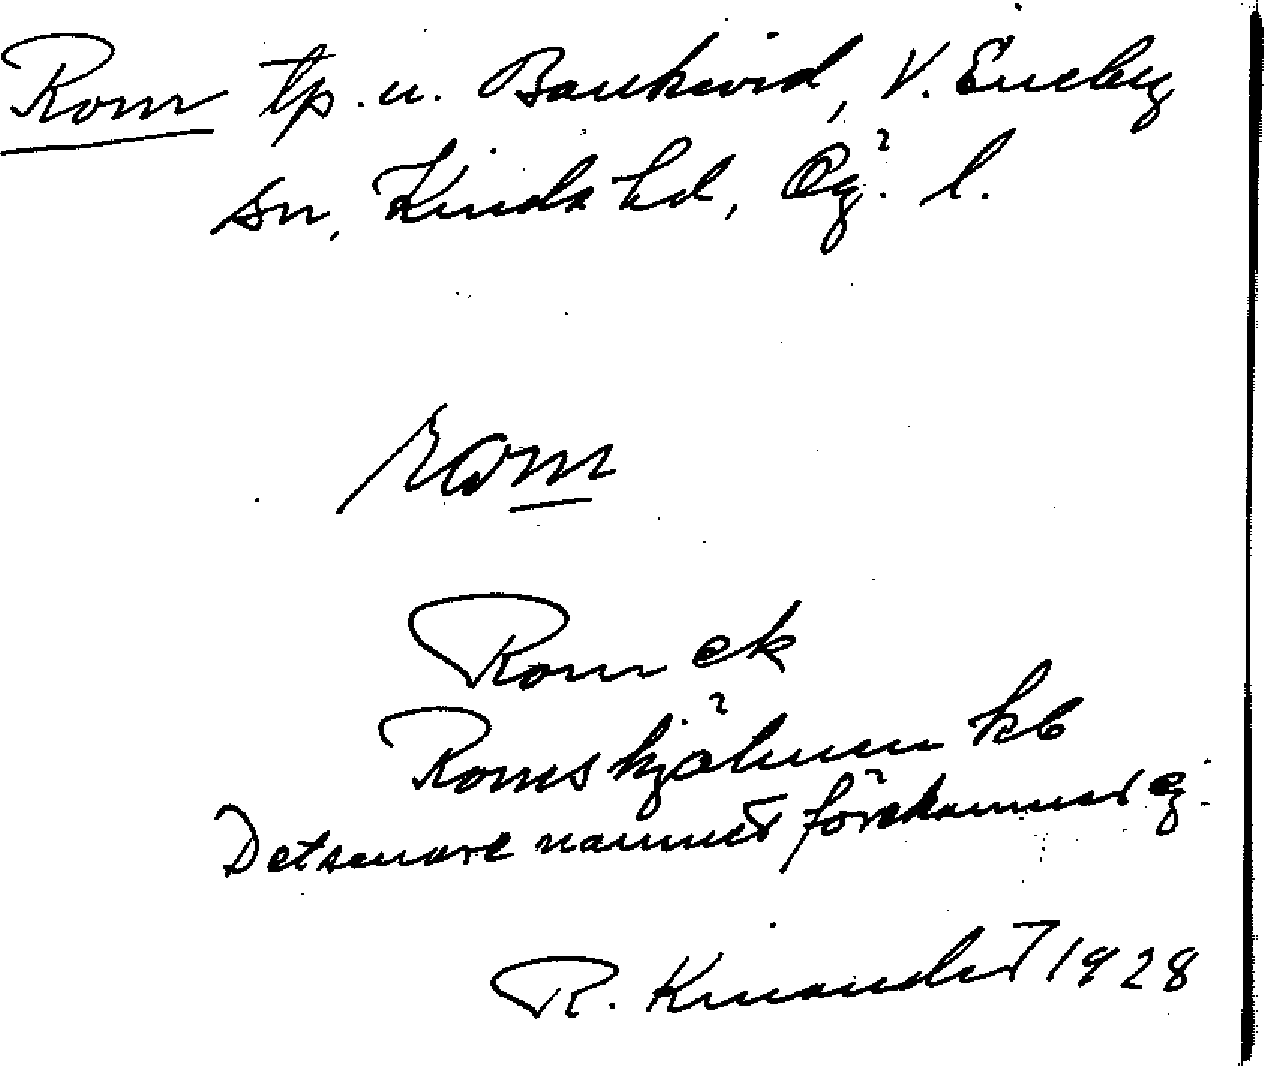 Rom tp. u. Bankvid, V. Eneby
sn, Kinda hd, Ög. l.
Rom ek
Romshjälmen kb
Det senare namnet förekommer ej.
R. Kinander 1928